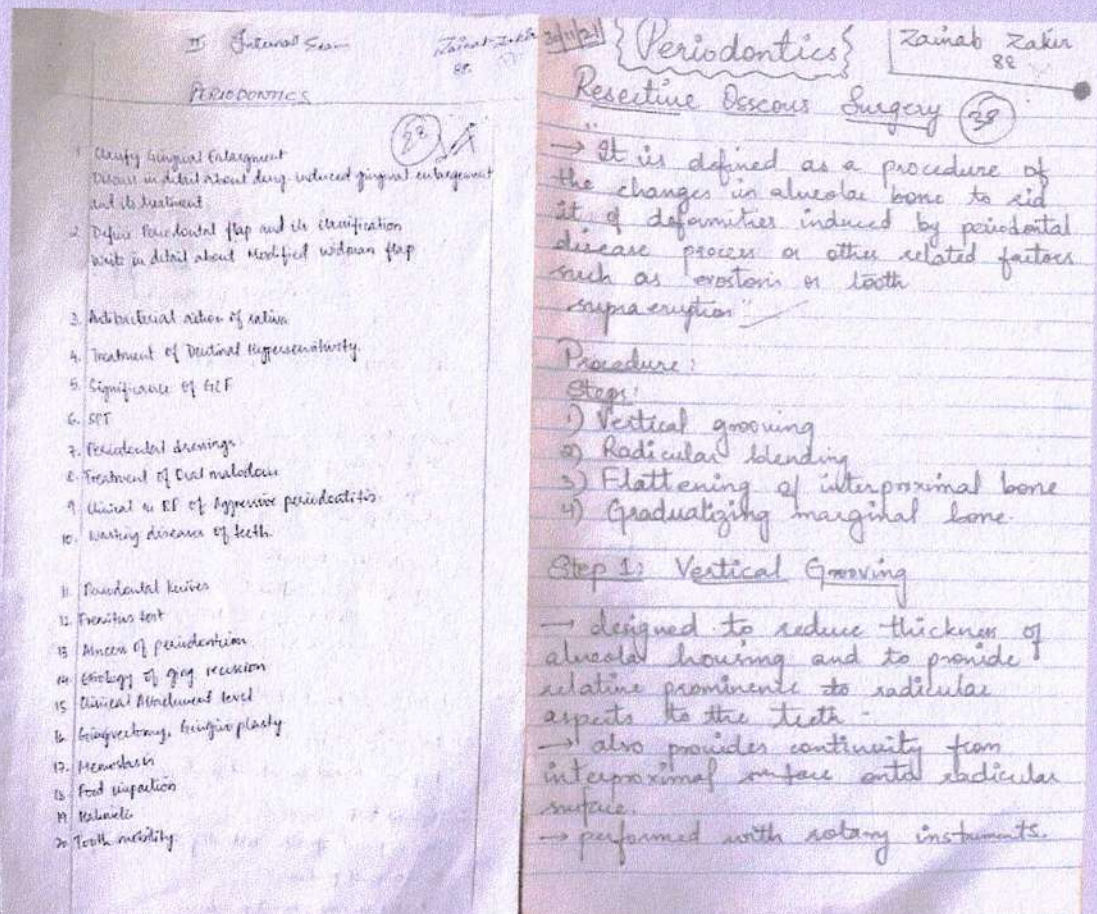 II Internal
Zainab Zakir
88
PERIODONTICS
23
1 Classify Gingival Enlargment
Discuss in detail about drug-induced gingival enlargement
and its treatment
2. Define Periodontal flap and its classification
Write in detail about Modified widman flap
3. Antibacterial action of saliva
4. Treatment of Dentinal Hypersensitivity
5. Significance of GCF
6. SPT
7. Periodontal dressings
8. Treatment of Oral malodour
9. Clinical & RF of Aggressive periodontitis.
10. Wasting diseases of teeth.
11. Periodontal knives
12. Fremitus test
13 Abscess of periodontium
14. Etiology of ging recession
15 Clinical Attachment level
16. Gingivectomy, Gingivoplasty
17. Hemostasis
18. Food impaction
19
20 Tooth mobility.
{Periodontics}
Zainab Zakir
88
Resective Osseous Surgery
38
→ "It is defined as a procedure of
the changes in alveolar bone to rid
it of deformities induced by periodontal
disease process or other related factors
such as exostosis or tooth
supraeruption"
Procedure:
Steps:
1) Vertical grooving
2) Radicular blending
3) Flattening of interproximal bone
4) Gradualizing marginal bone.
Step 1: Vertical Grooving
→ designed to reduce thickness of
alveolar housing and to provide
relative prominence to radicular
aspects to the teeth.
→ also provides continuity from
interproximal surface onto radicular
surface.
→ performed with rotary instruments.